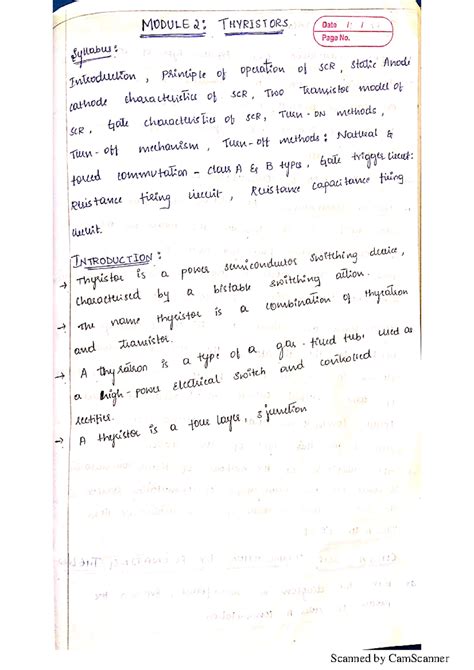 MODULE 2: THYRISTORS.
Date / /
Page No.
Syllabus:
Introduction, Principle of operation of SCR, Static Anode
cathode characteristics of SCR, Two Transistor model of
SCR, Gate characteristics of SCR, Turn-ON methods,
Turn-off mechanism, Turn-off methods: Natural &
forced commutation - class A & B types, Gate trigger circuit:
Resistance firing circuit, Resistance capacitance firing
circuit.
INTRODUCTION:
→ Thyristor is a power semiconductor switching device,
characterised by a bistable switching action.
→ The name thyristor is a combination of thyratron
and transistor.
→ A thyratron is a type of a gas-filled tube used as
a high-power electrical switch and controlled
rectifier.
→ A thyristor is a four layer, 3 junction
Scanned by CamScanner